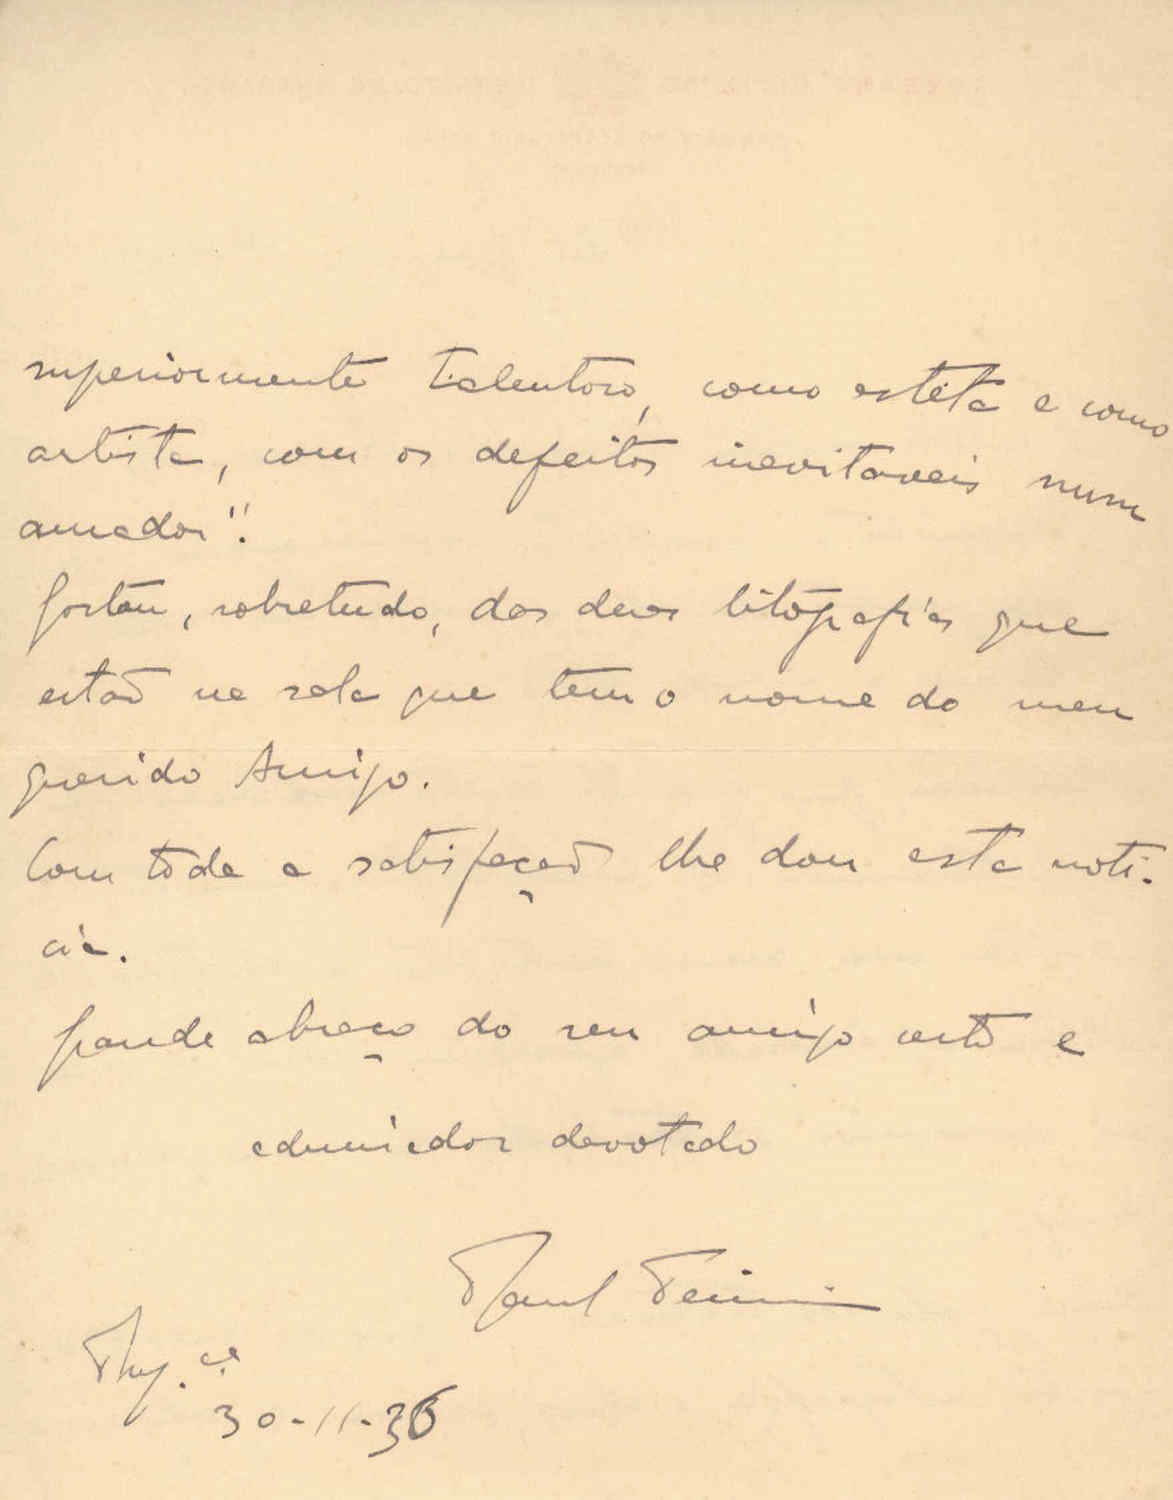 superiormente talentoso, como esteta e como
artista, com os defeitos inevitaveis num
amador".
Gostou, sobretudo, das duas litografias que
estaõ na sala que tem o nome do meu
querido Amigo.
Com toda a satisfaçaõ lhe dou esta noti-
cia.
Grande abraço do seu amigo certo e
admirador devotado
30-11-36